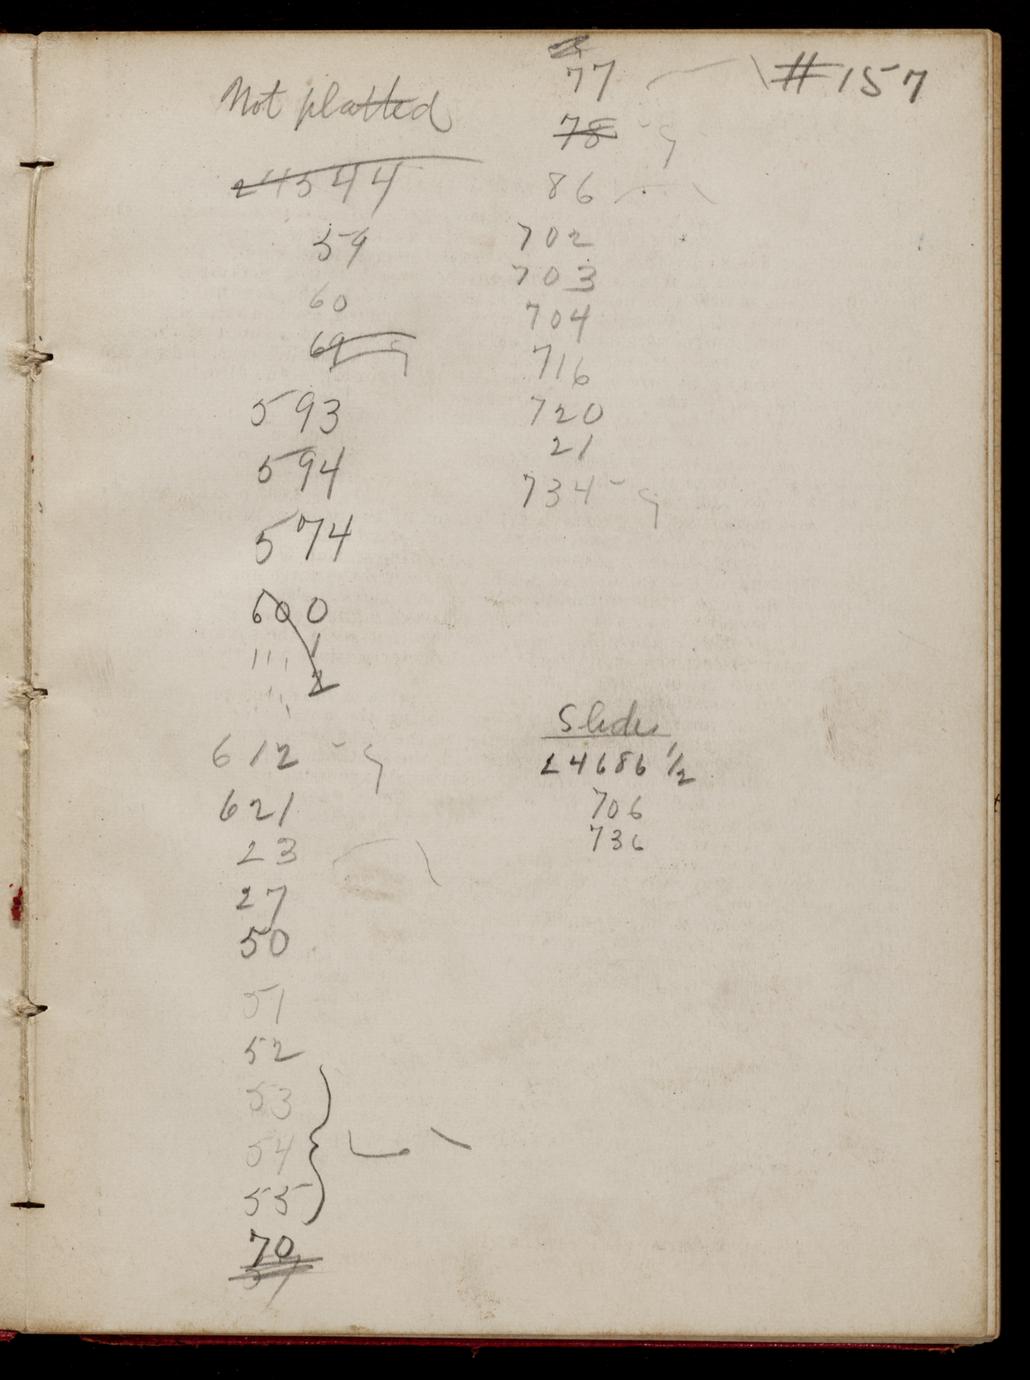 Not platted
24544
59
60
69
593
594
574
600
" " 1
" " 2
612 - g
621
23
27
50
51
52
53
54
55
70
77
78 - g
86
702
703
704
716
720
21
734 - g
#157
Slides
L4686 1/2
706
736